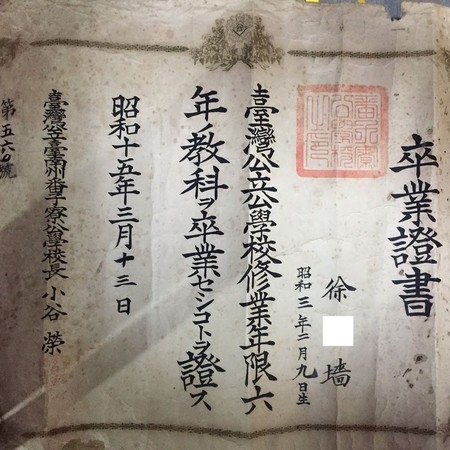 卒業證書
徐 墻
昭和三年二月九日生
臺灣公立公學校修業年限六
年ノ教科ヲ卒業セシコトヲ證ス
昭和十五年三月十三日
臺灣公立臺南州番子寮公學校長 小谷 榮
第五六号號